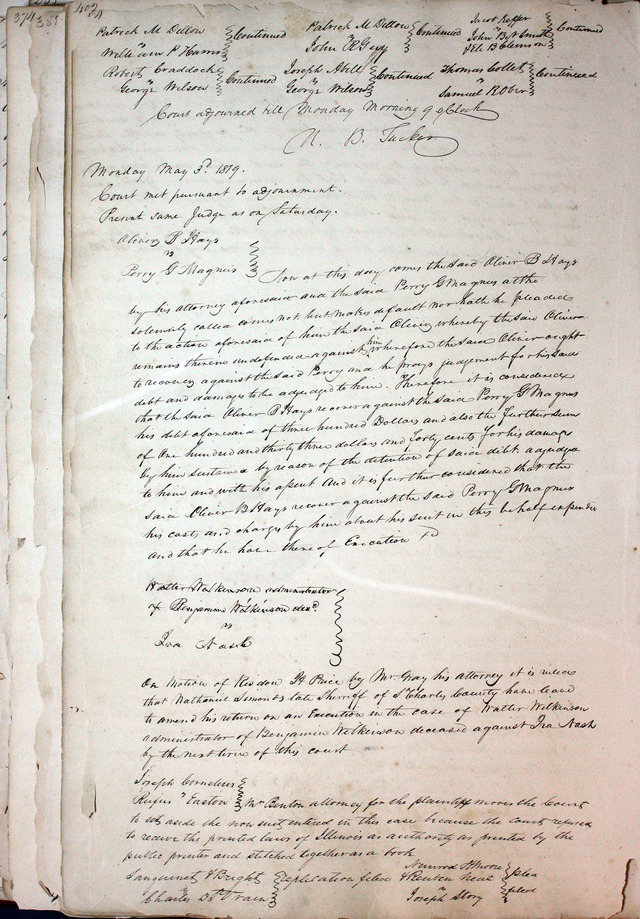 374 381 402
Patrick M Dillon } Continued Patrick M Dillon } Continued Jacob Keffer } Continued
vs John Bte Smith
William P Harris John R Guy Jeb B Clemson
Robert Craddock } Continued Joseph Abell } Continued Thomas Collet } Continued
vs vs vs
George Wilson George Wilson Samuel R Ober
Court adjourned till Monday Morning 9 oClock
N. B. Tucker
Monday May 3d. 1819.
Court met pursuant to adjournment.
Present same Judge as on Saturday.
Oliver B Hays
vs
Perry G Magnus } Now at this day comes the said Oliver B Hays
by his attorney aforesaid and the said Perry G Magnus altho
solemnly called comes not but makes default nor hath he pleaded
to the action aforesaid of him the said Oliver whereby the said Oliver
remains therein undefended against him wherefore the said Oliver ought
to recover against the said Perry and he prays judgement for his said
debt and damages to be adjudged to him. Therefore it is considered
that the said Oliver B Hays recover against the said Perry G Magnus
his debt aforesaid of three hundred Dollars and also the further sum
of One hundred and thirty three dollars and forty cents for his damages
by him sustained by reason of the detention of said debt adjudged
to him and with his assent And it is further considered that the
said Oliver B Hays recover against the said Perry G Magnus
his costs and charges by him about his suit in this behalf expended
and that he have thereof Execution &c
Walter Wilkinson administrator
of Benjamin Wilkinson decd.
vs
Ira Nash
On Motion of Risdon H Price by Mr Gray his attorney it is ruled
that Nathaniel Simonds late Sherriff of St Charles County have leave
to amend his return on an Execution in the case of Walter Wilkinson
administrator of Benjamin Wilkinson deceased against Ira Nash
by the next term of this court
Joseph Cornelius
vs
Rufus Easton } Mr Benton attorney for the plaintiff moves the Court
to set aside the non suit entered in this case because the court refused
to receive the printed laws of Illinois as authority as printed by the
public printer and stitched together as a book
Sanguinet & Bright } replication filed Nimrod H Moore & Reuben Neal } plea
vs vs
Charles D St Train Joseph Story filed